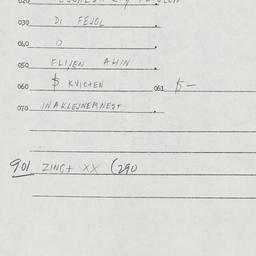 030 DI FEJGL
040 O
050 FLIJEN AHIN
060 $ KVICHEN 061 $-
070 INAKLEJNEMNEST
901 ZINGT XX (290